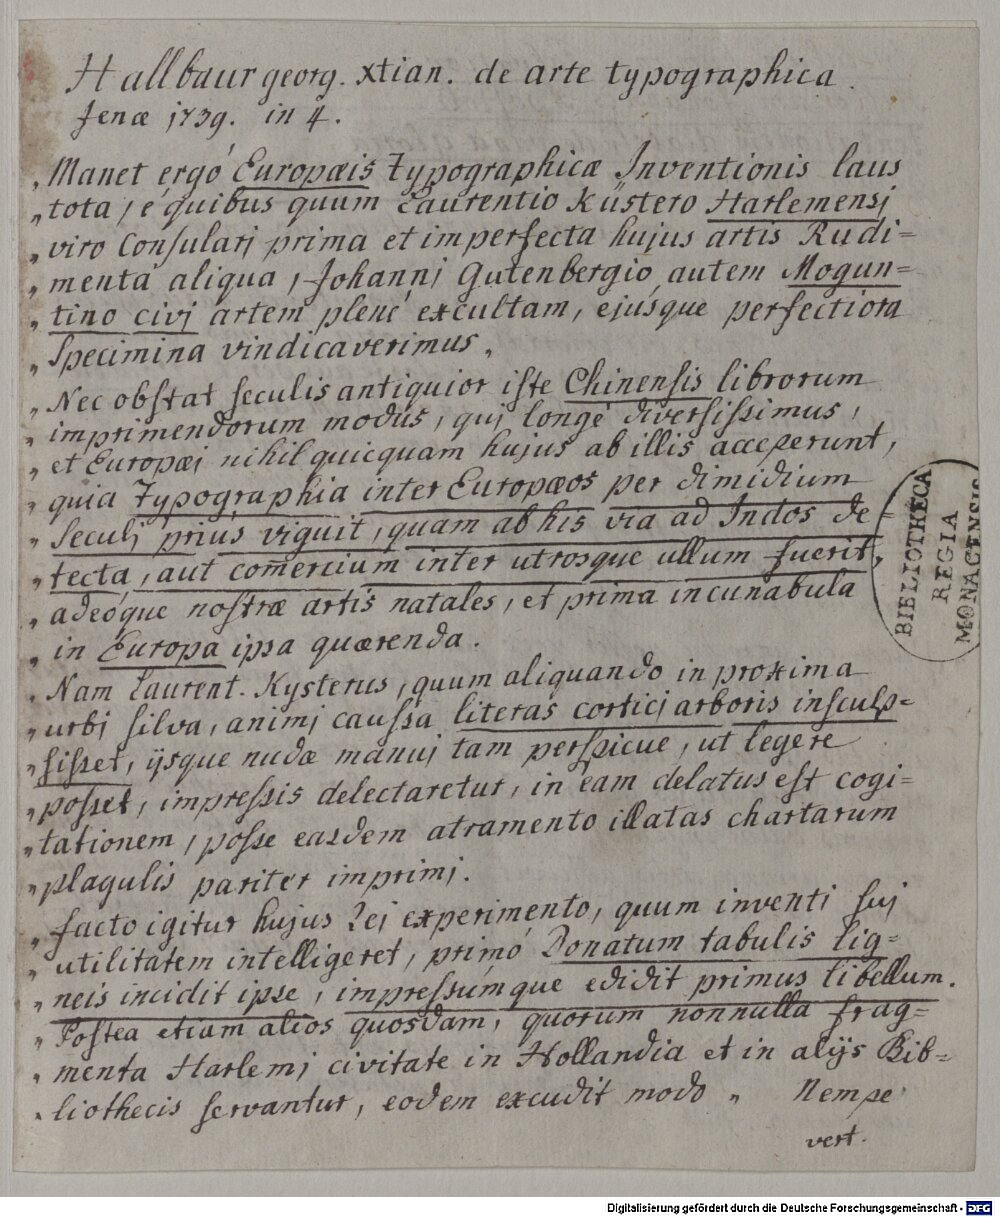 Hallbaur georg. Xtian. de arte typographica.
Jenæ 1739. in 4.
„Manet ergò Europæis Typographicæ Inventionis laus
„tota, è quibus quum Laurentio Küstero Harlemensj
„viro Consularj prima et imperfecta hujus artis Rudi=
„menta aliqua, Johannj Gutenbergio autem Mogun=
„tino civj artem plenè excultam, ejúsque perfectiora
„Specimina vindicaverimus„
„Nec obstat seculis antiquior iste Chinensis librorum
„imprimendorum modus, quj longè diversissimus,
„et Europæj nihil quicquam hujus ab illis acceperunt,
„quia Typographia inter Europæos per dimidium
„Seculj priùs viguit, quam ab his via ad Indos de=
„tecta, aut com̃ercium inter utrosque ullum fuerit,
„adeóque nostræ artis natales, et prima incunabula
„in Europa ipsa quærenda.
„Nam Laurent. Kysterus, quum aliquando in proxima
„urbj silva, animj caussa literas corticj arboris insculp=
„sisset, ijsque nudæ manuj tam perspicue, ut legere
„posset, impressis delectaretur, in eam delatus est cogi=
„tationem, posse easdem atramento illatas chartarum
„plagulis pariter imprimj.
„facto igitur hujus Rej experimento, quum inventi suj
„utilitatem intelligeret, primò Donatum tabulis lig=
„neis incidit ipse, impressúmque edidit primus libellum.
„Postea etiam alios quosdam, quorum nonnulla frag=
„menta Harlemj civitate in Hollandia et in alijs Bib=
„liothecis servantur, eodem excudit modo„ Nempe
vert.
BIBLIOTHECA
REGIA
MONACENSIS
Digitalisierung gefördert durch die Deutsche Forschungsgemeinschaft - DFG